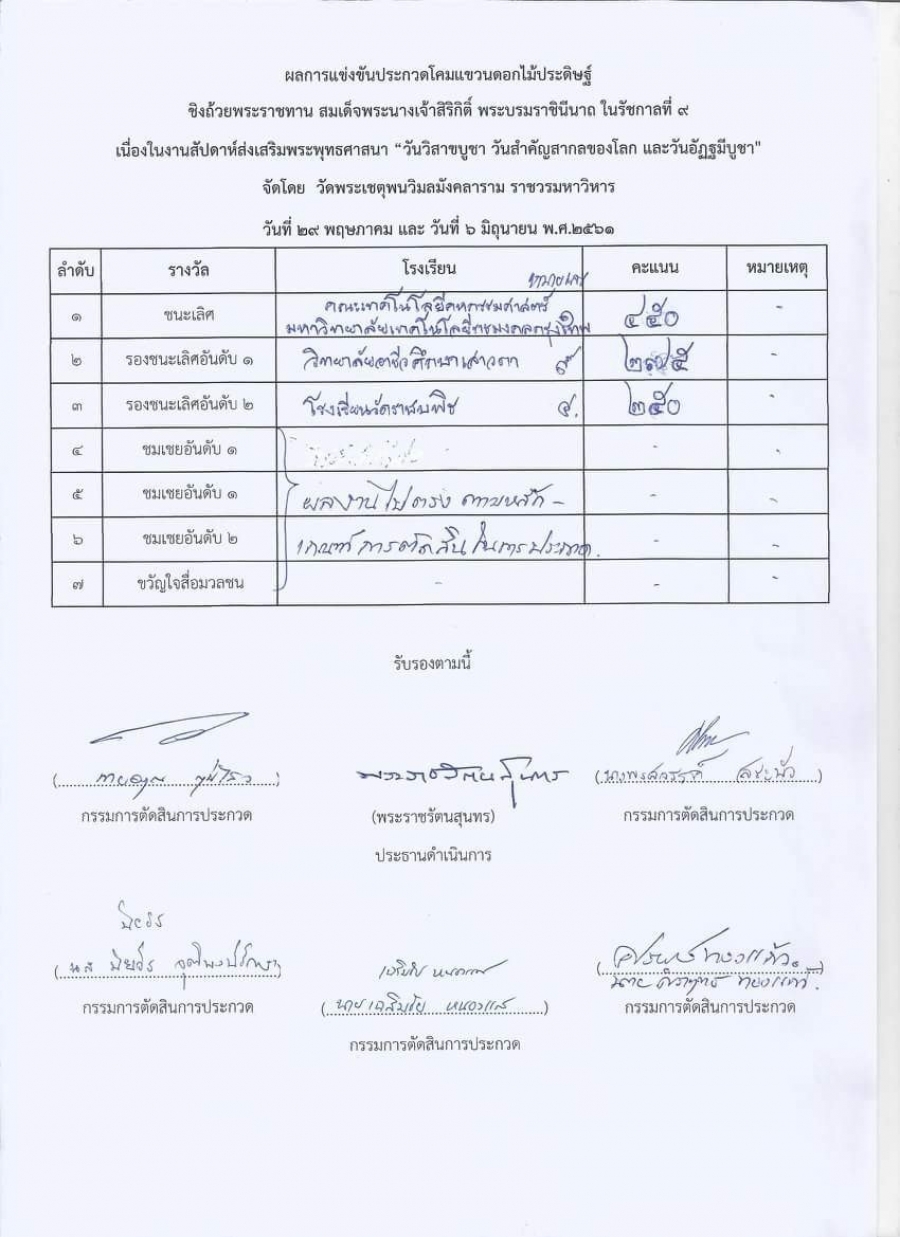 ผลการแข่งขันประกวดโคมแขวนดอกไม้ประดิษฐ์
ชิงถ้วยพระราชทาน สมเด็จพระนางเจ้าสิริกิติ์ พระบรมราชินีนาถ ในรัชกาลที่ ๙
เนื่องในงานสัปดาห์ส่งเสริมพระพุทธศาสนา “วันวิสาขบูชา วันสำคัญสากลของโลก และวันอัฏฐมีบูชา"
จัดโดย วัดพระเชตุพนวิมลมังคลาราม ราชวรมหาวิหาร
วันที่ ๒๙ พฤษภาคม และ วันที่ ๖ มิถุนายน พ.ศ.๒๕๖๑
ลำดับ รางวัล โรงเรียน หมายเลข คะแนน หมายเหตุ
๑ ชนะเลิศ คณะเทคโนโลยีคหกรรมศาสตร์ ๔๕๐ -
มหาวิทยาลัยเทคโนโลยีราชมงคลกรุงเทพ ๑
๒ รองชนะเลิศอันดับ ๑ วิทยาลัยอาชีวศึกษาเสาวภา ๙ -
๓ รองชนะเลิศอันดับ ๒ โรงเรียนวัดราชบพิธ ๔. ๒๕๐ -
๔ ชมเชยอันดับ ๑ - - -
๕ ชมเชยอันดับ ๑ ผลงานไม่ตรง ตามหลัก - - -
๖ ชมเชยอันดับ ๒ เกณฑ์การตัดสินในการประกวด. - -
๗ ขวัญใจสื่อมวลชน - - -
รับรองตามนี้
พระราชรัตนสุนทร
กรรมการตัดสินการประกวด (พระราชรัตนสุนทร) กรรมการตัดสินการประกวด
ประธานดำเนินการ
กรรมการตัดสินการประกวด กรรมการตัดสินการประกวด
กรรมการตัดสินการประกวด